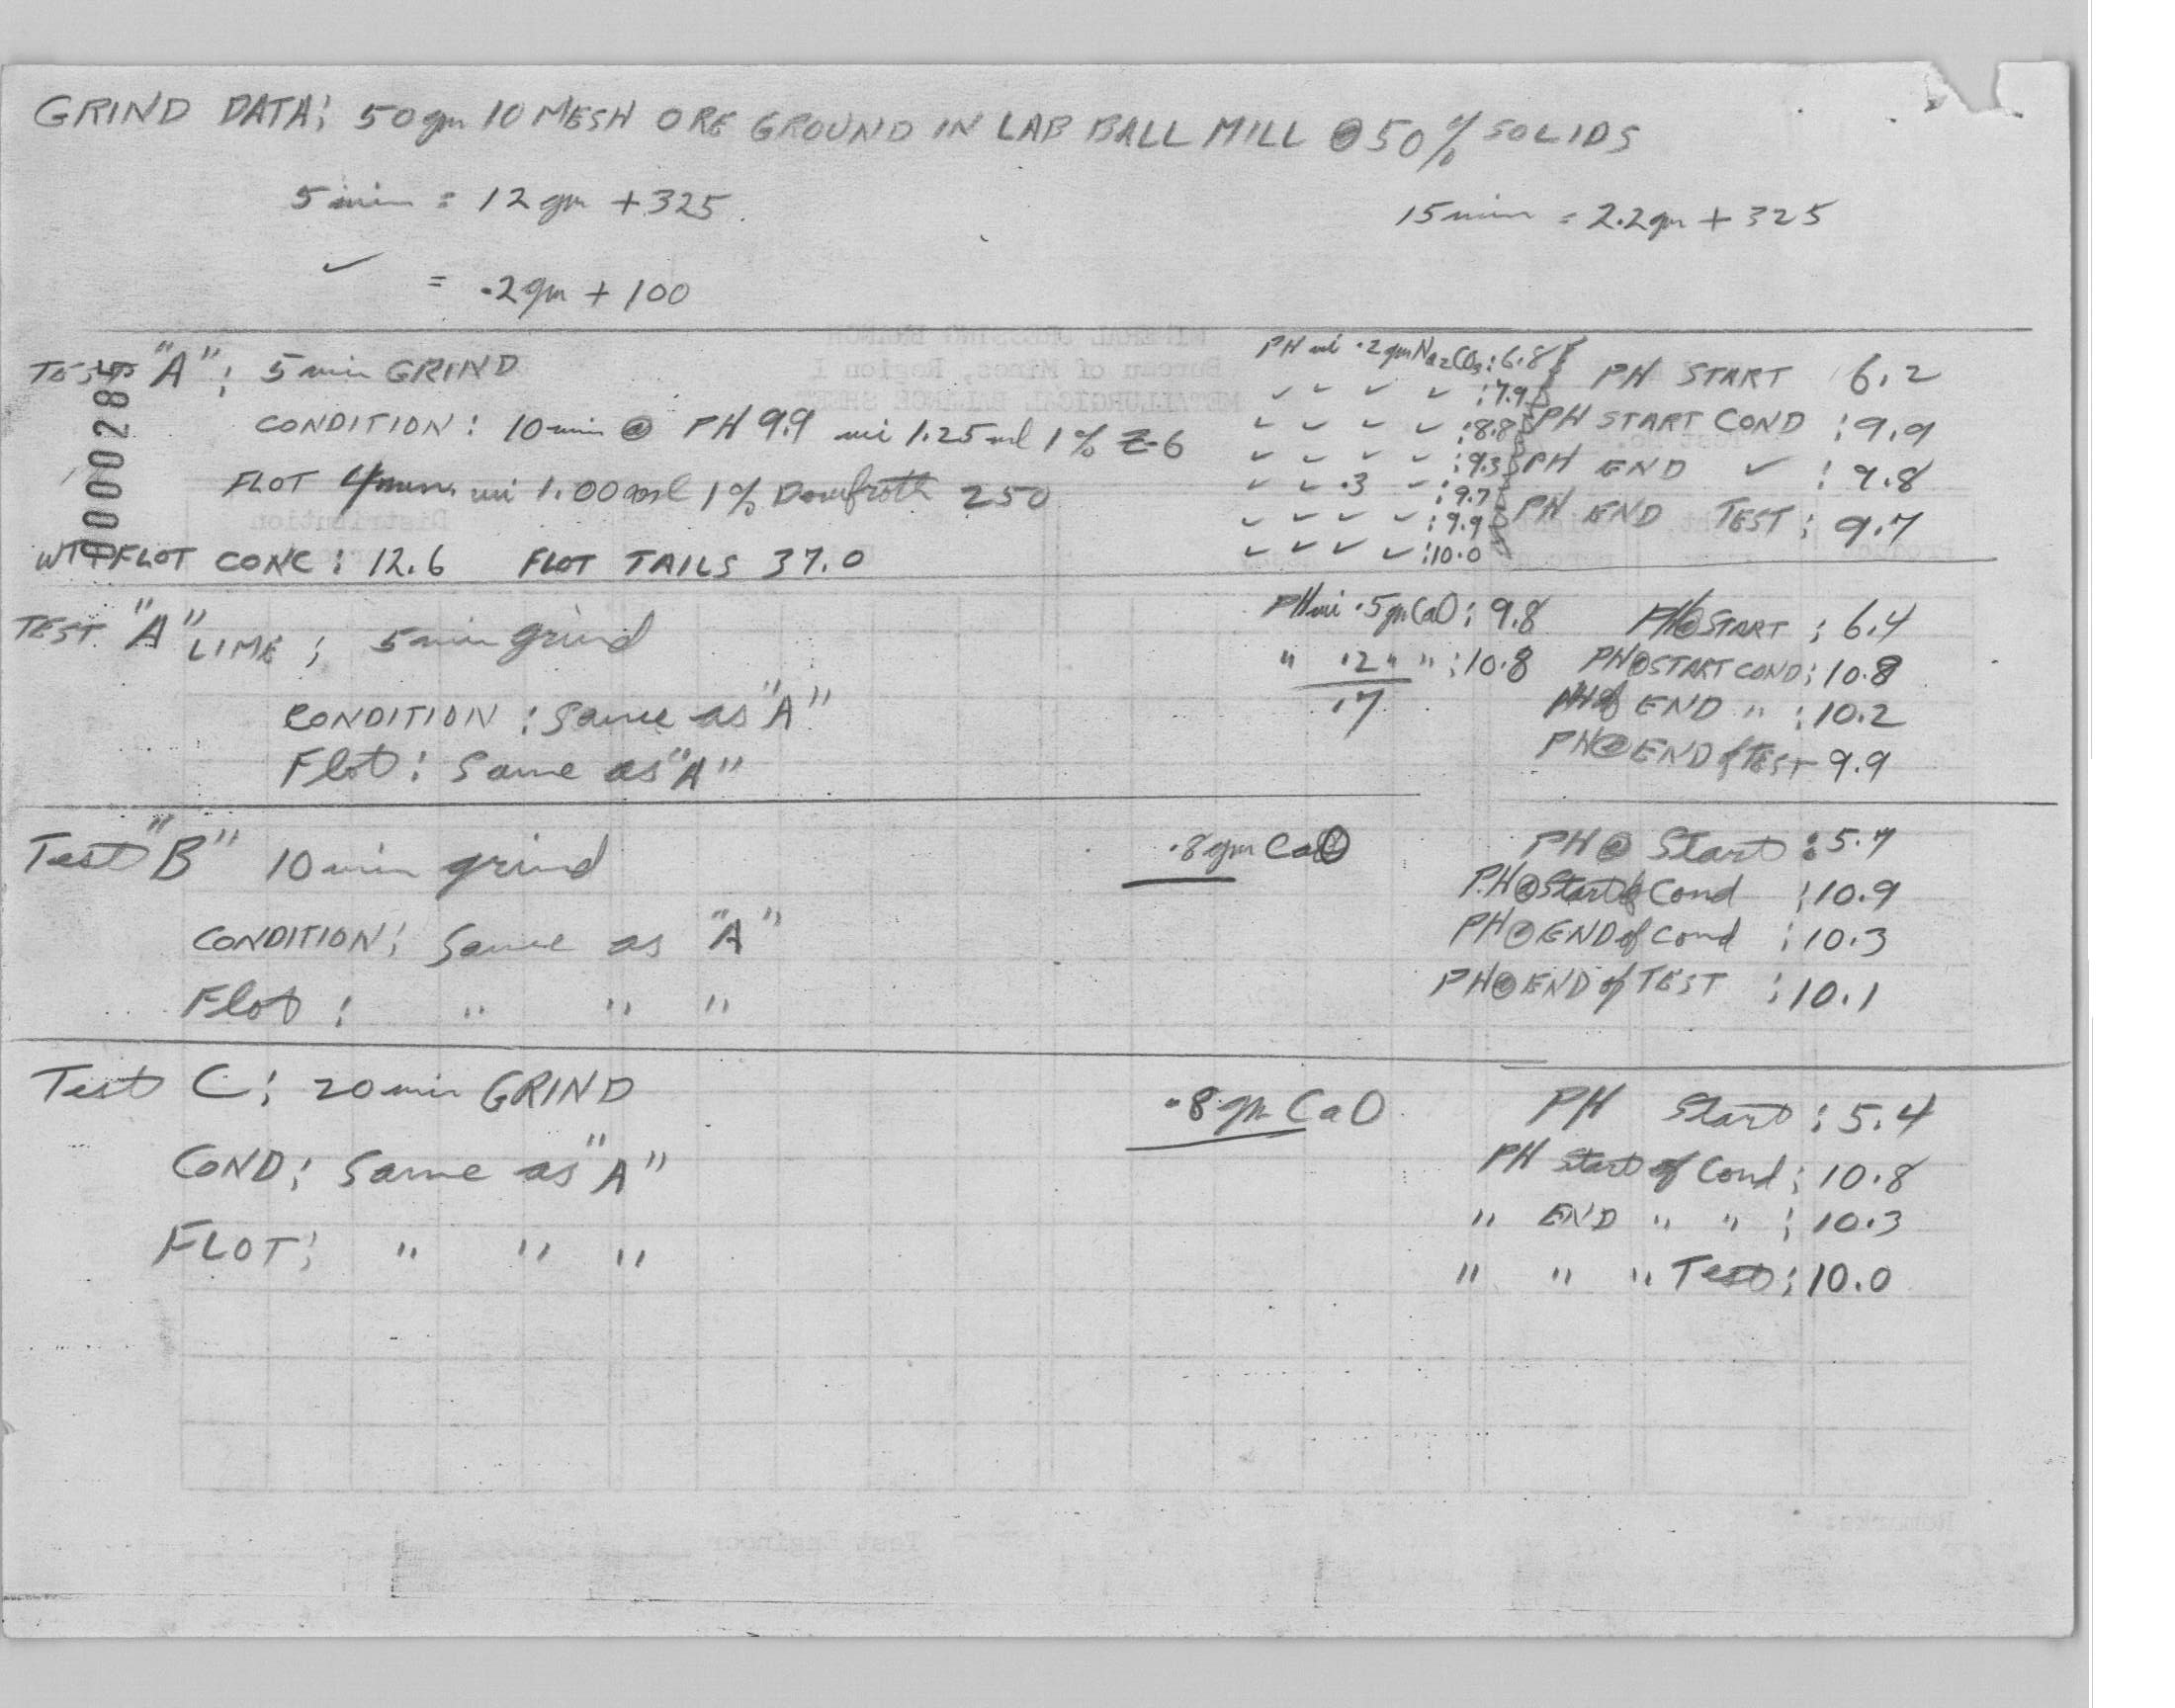 GRIND DATA: 50gm 10 MESH ORE GROUND IN LAB BALL MILL @ 50% SOLIDS
5 min = 12 gm +325. 15 min = 2.2gm + 325
✓ = .2gm + 100
TEST "A": 5 min GRIND
CONDITION: 10 min @ PH 9.9 wi 1.25 ml 1% Z-6
FLOT 4 min. wi 1.00 ml 1% Dowfroth 250
WT FLOT CONC: 12.6 FLOT TAILS 37.0
0000285
PH wi .2gm Na2CO3: 6.8
✓ ✓ ✓ ✓ : 7.9
✓ ✓ ✓ ✓ : 8.8
✓ ✓ ✓ ✓ : 9.3
✓ ✓ .3 ✓ : 9.7
✓ ✓ ✓ ✓ : 9.9
✓ ✓ ✓ ✓ : 10.0
PH START 6.2
PH START COND : 9.9
PH END ✓ : 9.8
PH END TEST: 9.7
TEST "A" LIME; 5 min grind
CONDITION: Same as "A"
Flot: Same as "A"
PH wi .5gm CaO: 9.8
" .2 " " : 10.8
.7
PH@START : 6.4
PH@START COND: 10.8
PH of END " : 10.2
PH@END of TEST 9.9
Test "B" 10 min grind
CONDITION: Same as "A"
Flot : " " "
.8 gm CaO
PH@ Start : 5.7
PH@Start of Cond : 10.9
PH@END of Cond : 10.3
PH@END of TEST : 10.1
Test C: 20 min GRIND
COND: Same as "A"
FLOT: " " "
.8 gm CaO
PH Start : 5.4
PH Start of Cond: 10.8
" END " " : 10.3
" " " Test: 10.0